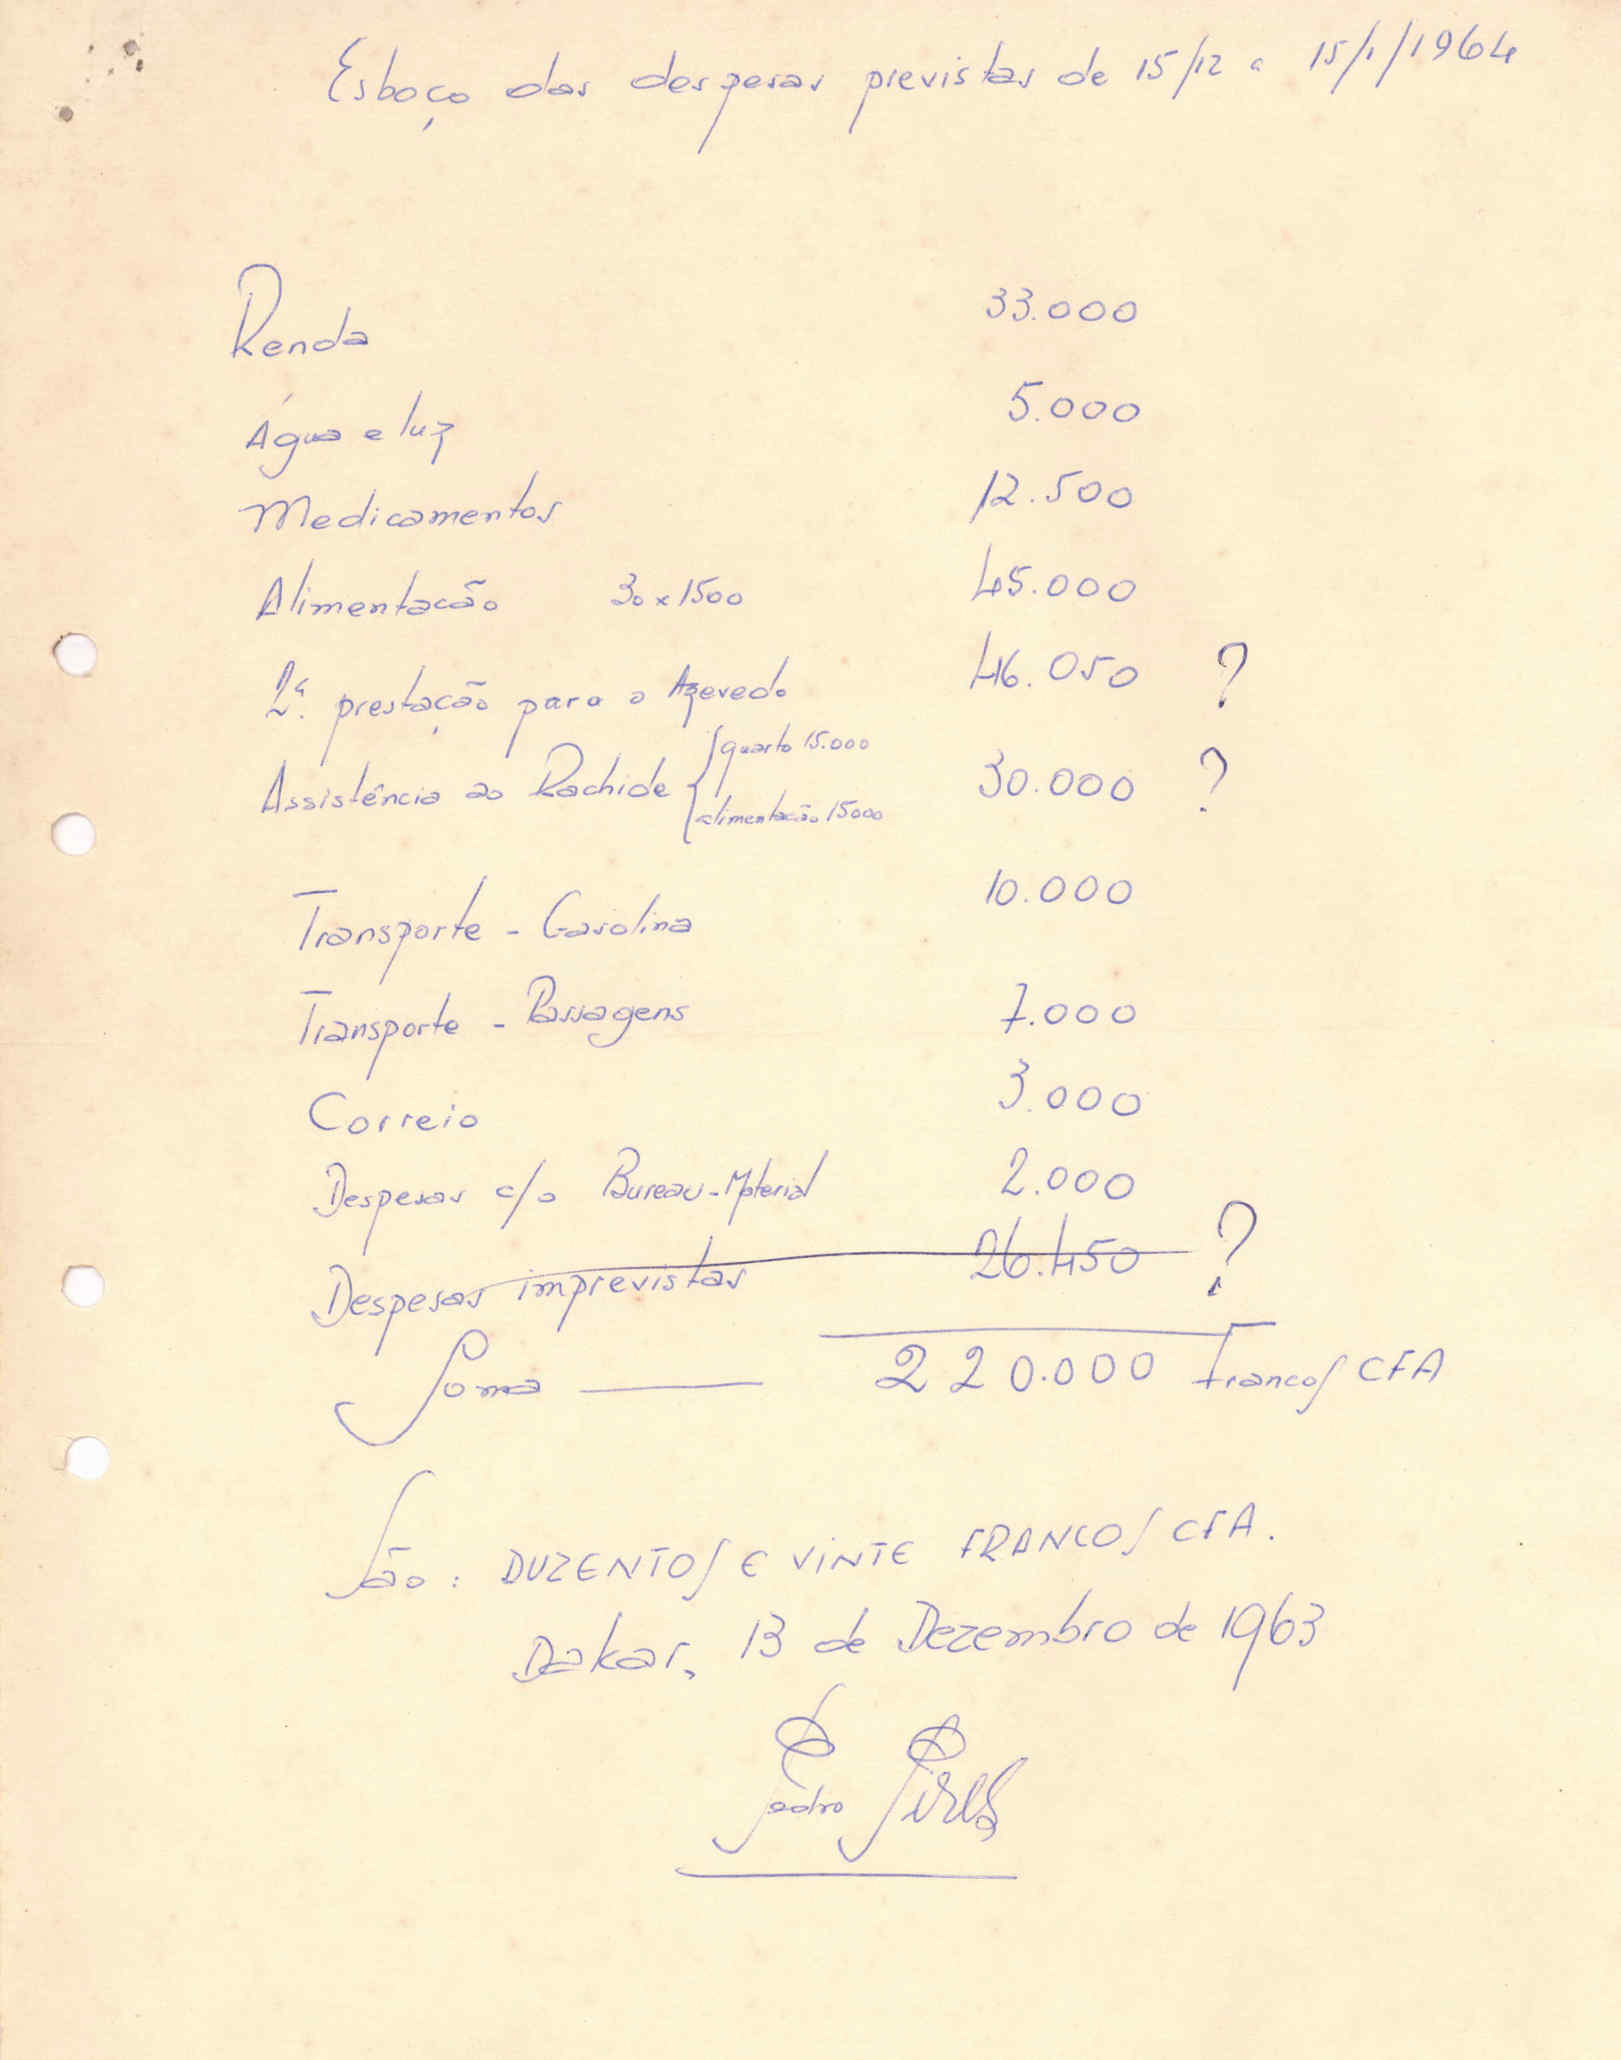 Esboço das despesas previstas de 15/12 a 15/1/1964
Renda 33.000
Água e luz 5.000
Medicamentos 12.500
Alimentacão 30x1500 45.000
2ª. prestação para o Azevedo 46.050 ?
Assistência ao Rachide { quarto 15.000
alimentacão 15000 30.000 ?
Transporte - Gasolina 10.000
Transporte - Passagens 7.000
Correio 3.000
Despesas c/o Bureau-Material 2.000
Despesas imprevistas 26.450 ?
Soma — 220.000 Francos CFA
São: DUZENTOS E VINTE FRANCOS CFA.
Dakar, 13 de Dezembro de 1963
Pedro Pires